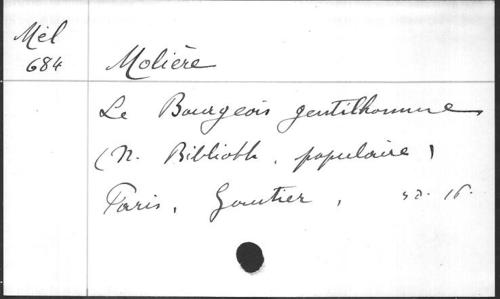 Mél
684
Molière
Le Bourgeois gentilhomme
(N. Biblioth. populaire)
Paris, Gautier, s. d. 16.